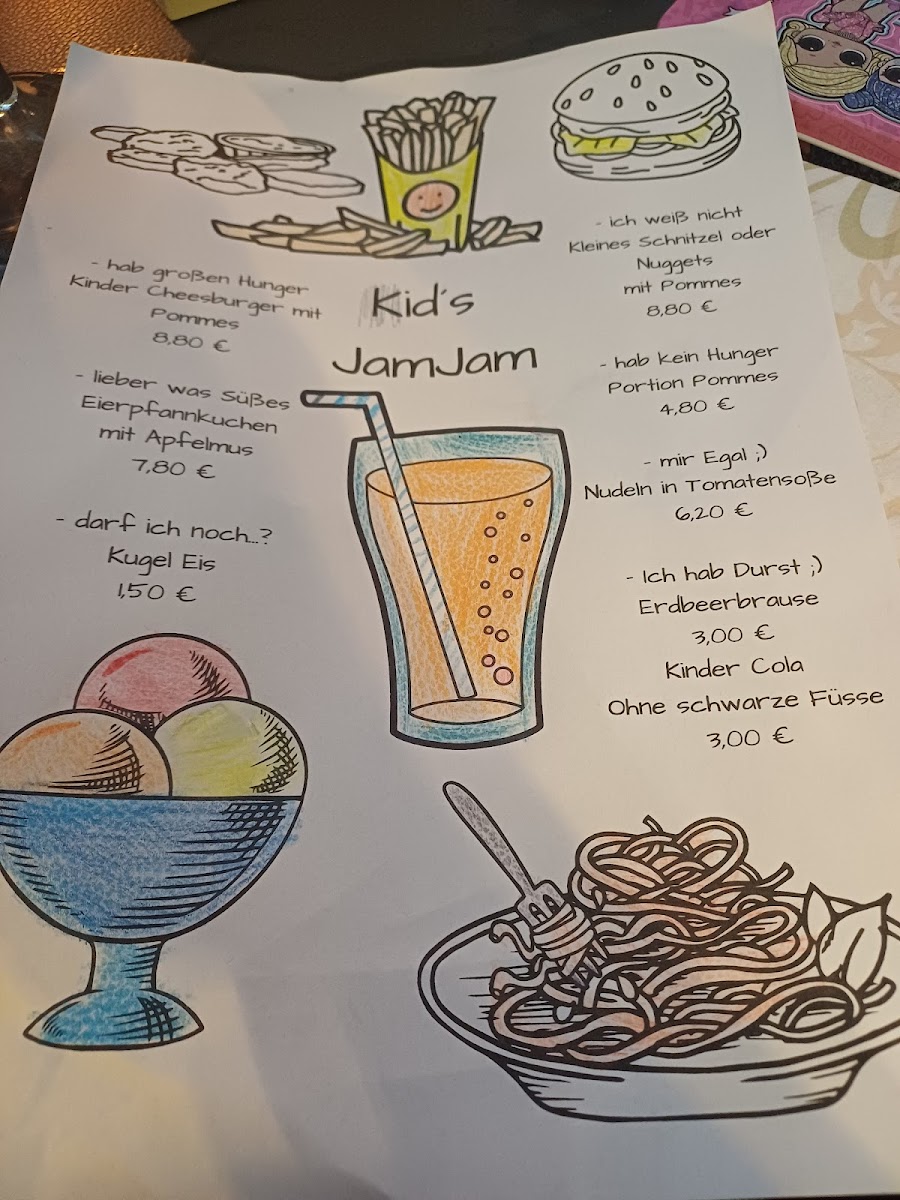 Kid's
JamJam
- hab großen Hunger
Kinder Cheesburger mit
Pommes
8,80 €
- lieber was Süßes
Eierpfannkuchen
mit Apfelmus
7,80 €
- darf ich noch...?
Kugel Eis
1,50 €
- ich weiß nicht
Kleines Schnitzel oder
Nuggets
mit Pommes
8,80 €
- hab kein Hunger
Portion Pommes
4,80 €
- mir Egal ;)
Nudeln in Tomatensoße
6,20 €
- Ich hab Durst ;)
Erdbeerbrause
3,00 €
Kinder Cola
Ohne schwarze Füsse
3,00 €